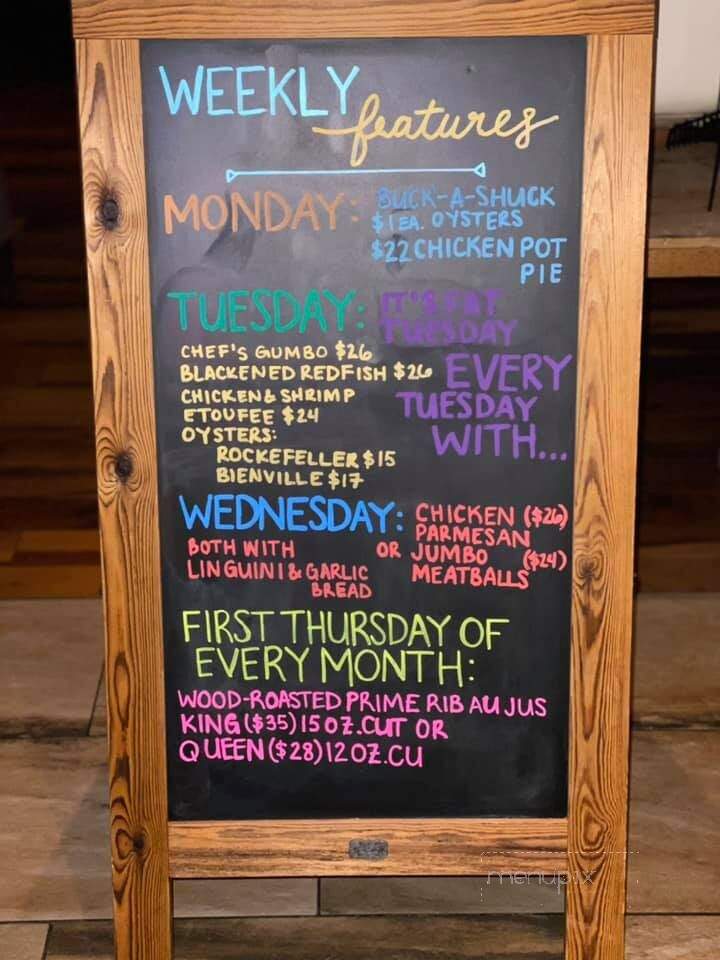 WEEKLY
features
MONDAY: BUCK-A-SHUCK
$1 EA. OYSTERS
$22 CHICKEN POT
PIE
TUESDAY: IT'S FAT
TUESDAY
EVERY
TUESDAY
WITH...
CHEF'S GUMBO $26
BLACKENED REDFISH $26
CHICKEN & SHRIMP
ETOUFEE $24
OYSTERS:
ROCKEFELLER $15
BIENVILLE $17
WEDNESDAY: CHICKEN ($26)
PARMESAN
OR JUMBO ($24)
MEATBALLS
BOTH WITH
LINGUINI & GARLIC
BREAD
FIRST THURSDAY OF
EVERY MONTH:
WOOD-ROASTED PRIME RIB AU JUS
KING ($35) 15 OZ. CUT OR
QUEEN ($28) 12 OZ. CU
menupix